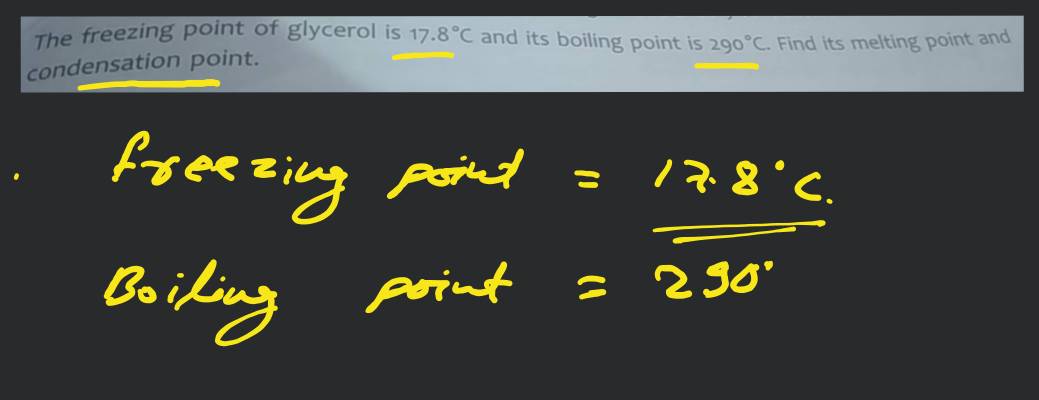 The freezing point of glycerol is 17.8°C and its boiling point is 290°C. Find its melting point and
condensation point.
freezing point = 17.8°C.
Boiling point = 290°